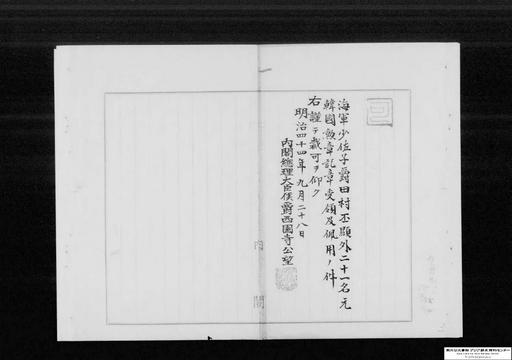 海軍少佐子爵田村丕顯外二十一名元
韓國勲章記章受領及佩用ノ件
右謹テ裁可ヲ仰ク
明治四十四年九月二十八日
内閣總理大臣侯爵西園寺公望
内閣